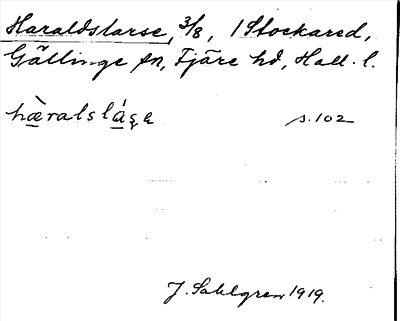 Haraldslarse, 3/8, 1 Stockared,
Gällinge sn, Fjäre hd, Hall. l.
hæ̀ralslás̨ə s. 102
J. Sahlgren 1919.